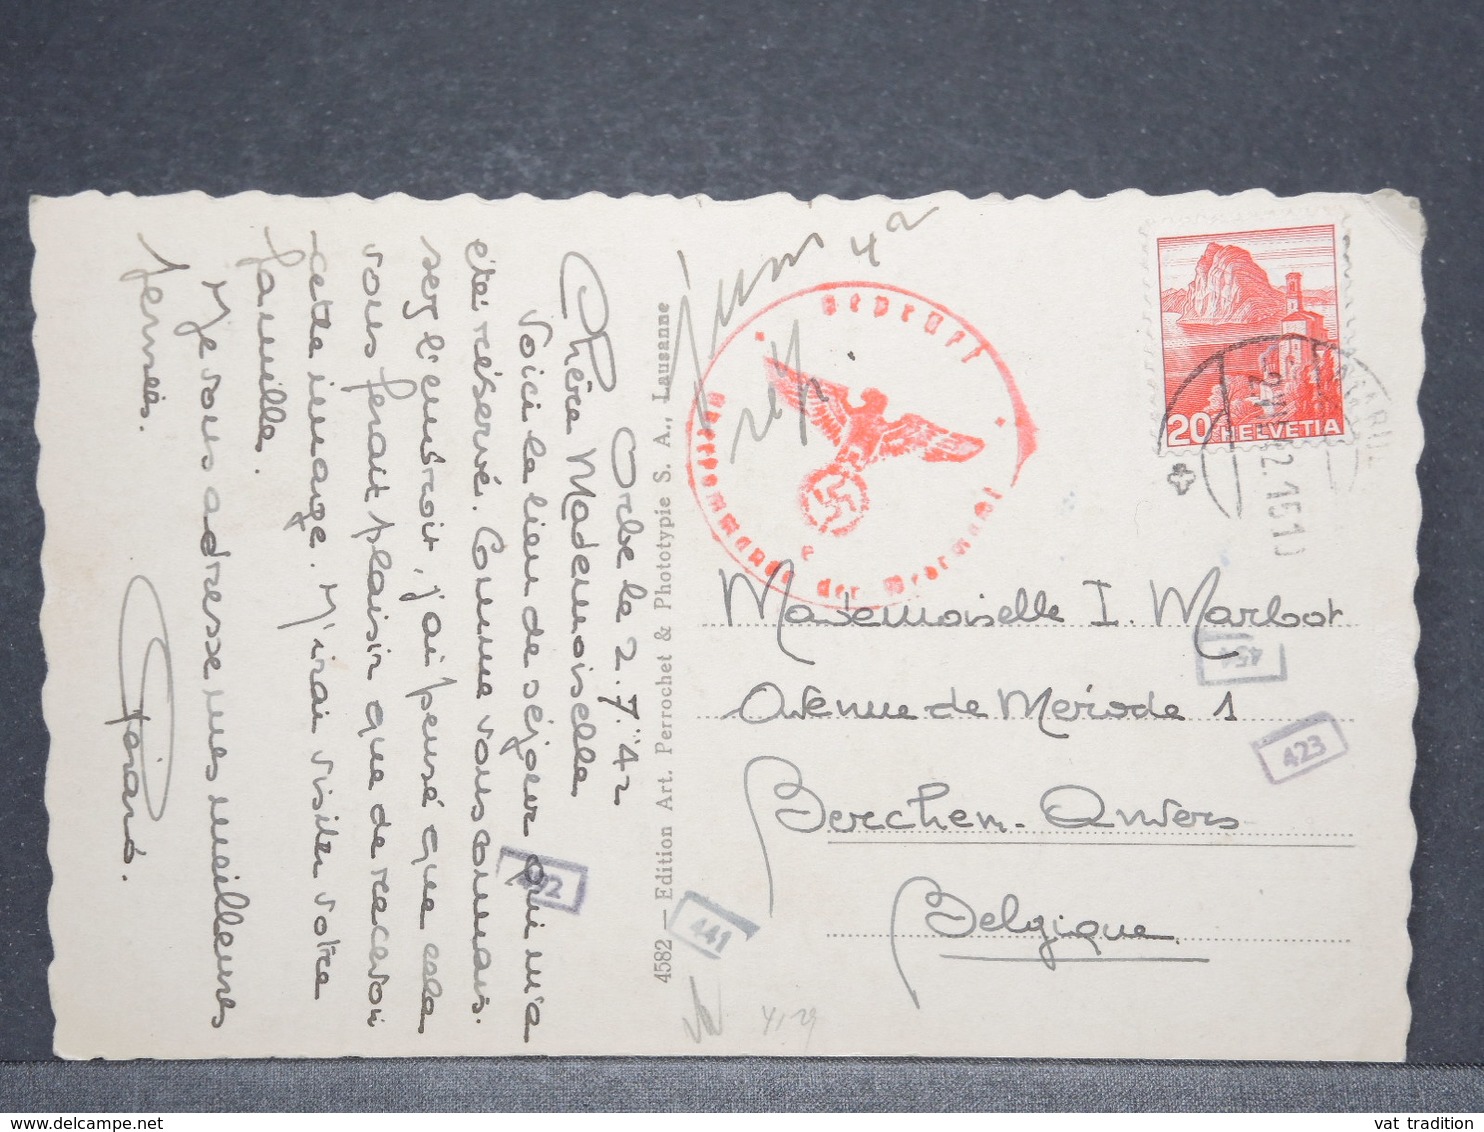 Orbe le 2.7.42
Chère Mademoiselle
Voici le lieu de séjour qui m'a
été réservé. Comme vous connais.
sez l'endroit, j'ai pensé que cela
vous ferait plaisir que de recevoir
cette image. M'irai visiter votre
famille.
Je vous adresse mes meilleures
pensées.
Gérard.
4582 — Edition Art. Perrochet & Phototypie S. A., Lausanne
geprüft
Oberkommando der Wehrmacht
e
20 HELVETIA
Mademoiselle I. Marbot
Avenue de Mérode 1
Berchem-Anvers
Belgique
454
423
402
441
vat tradition